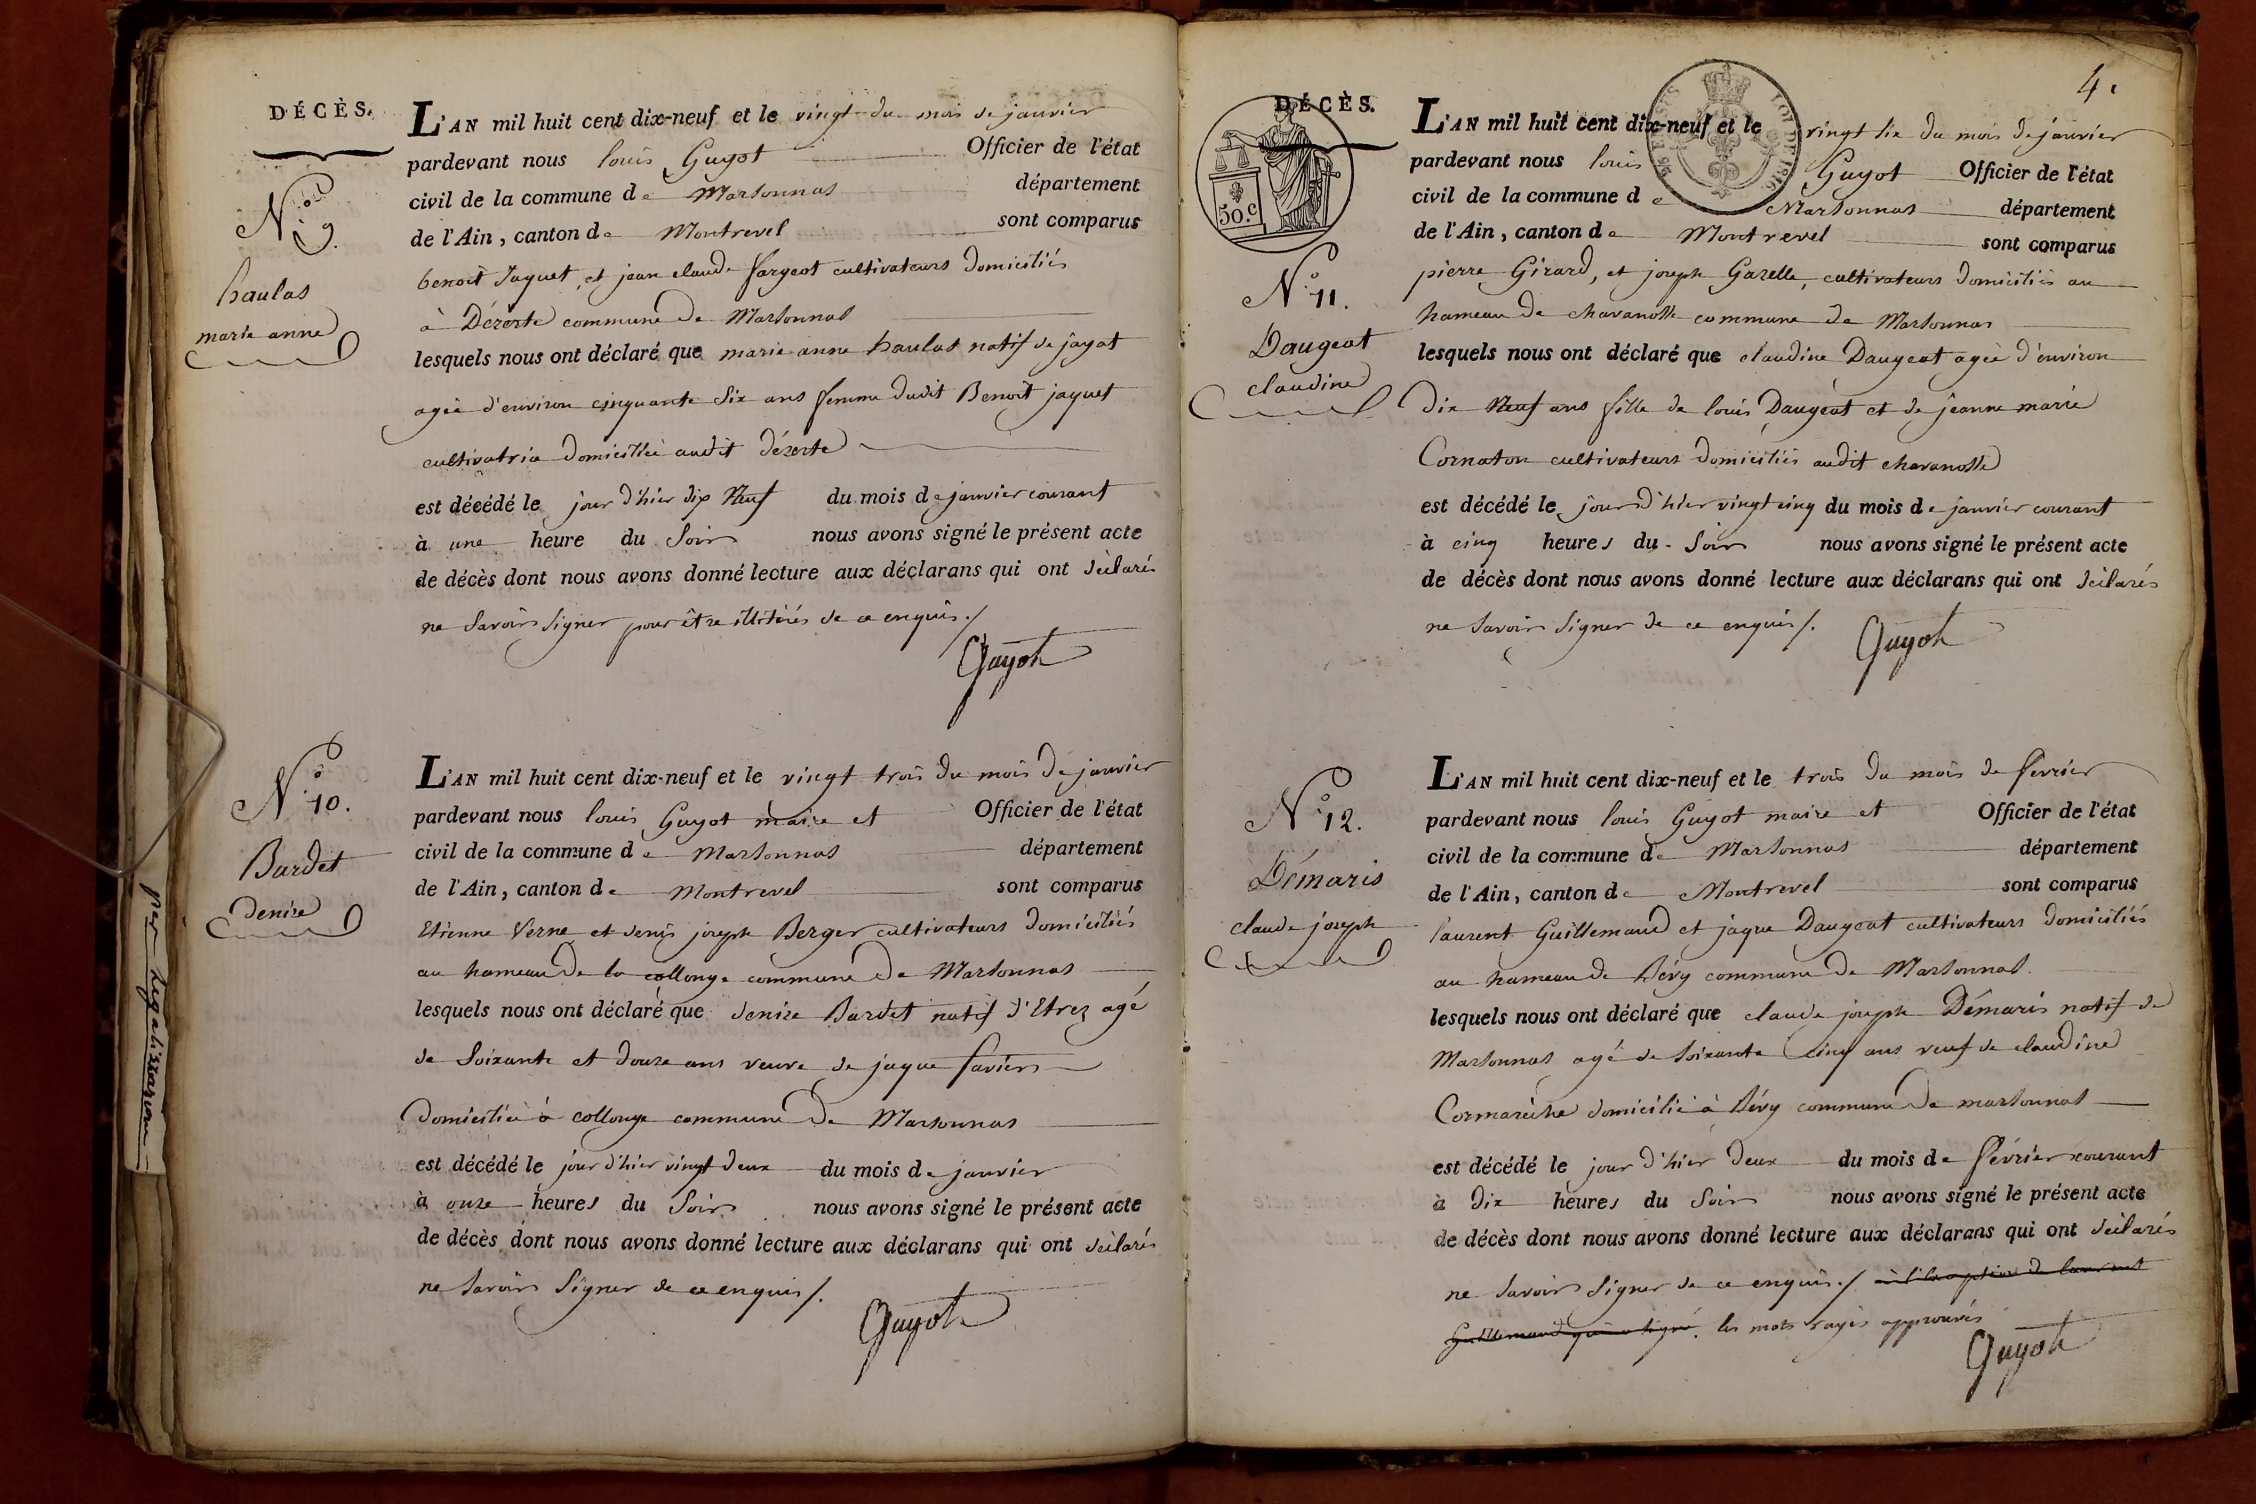 DÉCÈS.
N.° 9.
haulas
marie anne
L'AN mil huit cent dix-neuf et le vingt du mois de janvier
pardevant nous louis Guyot Officier de l'état
civil de la commune de Marsonnas département
de l'Ain, canton de Montrevel sont comparus
benoit Jaquet, et jean claude fargeot cultivateurs domiciliés
à Dézerte commune De Marsonnas
lesquels nous ont déclaré que marie anne haulas natif de jayat
agée d'environ cinquante Six ans femme dudit Benoit jaquet
cultivatrice domiciliée audit dézerte
est décédé le jour d'hier dix Neuf du mois de janvier courant
à une heure du Soir nous avons signé le présent acte
de décès dont nous avons donné lecture aux déclarans qui ont déclarés
ne Savoir Signer pour être illitérés de ce enquis ./
Guyot
N.° 10.
Bardet
denise
L'AN mil huit cent dix-neuf et le vingt trois du mois de janvier
pardevant nous louis Guyot maire et Officier de l'état
civil de la commune de Marsonnas département
de l'Ain, canton de Montrevel sont comparus
Etienne Verne et denis joseph Berger cultivateurs domiciliés
au hameau De la collonge commune De Marsonnas
lesquels nous ont déclaré que denise Bardet natif d'Etrez agé
de Soixante et douze ans veuve de jaque favier
domiciliée à collonge commune De Marsonnas
est décédé le jour d'hier vingt deux du mois de janvier
à onze heures du Soir nous avons signé le présent acte
de décès dont nous avons donné lecture aux déclarans qui ont déclarés
ne Savoir Signer de ce enquis /.
Guyot
per legalizzazione
4.
DÉCÈS.
50.c
N.° 11.
Daugeat
claudine
L'AN mil huit cent dix-neuf et le vingt six du mois de janvier
pardevant nous louis Guyot Officier de l'état
civil de la commune de Marsonnas département
de l'Ain, canton de Montrevel sont comparus
pierre Girard, et joseph Gazelle, cultivateurs domiciliés au
hameau de chavanosse commune de Marsonnas
lesquels nous ont déclaré que claudine Daugeat agée d'environ
dix Neuf ans fille de louis Daugeat et de jeanne marie
Cornaton cultivateurs domiciliés audit chavanosse
est décédé le jour d'hier vingt cinq du mois de janvier courant
à cinq heures du Soir nous avons signé le présent acte
de décès dont nous avons donné lecture aux déclarans qui ont déclarés
ne Savoir Signer de ce enquis /.
Guyot
N.° 12.
Démaris
claude joseph
L'AN mil huit cent dix-neuf et le trois du mois de fevrier
pardevant nous louis Guyot maire et Officier de l'état
civil de la commune de Marsonnas département
de l'Ain, canton de Montrevel sont comparus
laurent Guillemaud et jaque Daugeat cultivateurs domiciliés
au hameau de Bévy commune De Marsonnas.
lesquels nous ont déclaré que claude joseph Démaris natif de
Marsonnas agé de Soixante cinq ans veuf de claudine
Cormarèche domicilié à Bévy commune De marsonnas
est décédé le jour d'hier deux du mois de février courant
à dix heures du Soir nous avons signé le présent acte
de décès dont nous avons donné lecture aux déclarans qui ont déclarés
ne Savoir Signer de ce enquis ./ à l'éxception de laurent
Guillemaud qui a signé. les mots rayés approuvés
Guyot